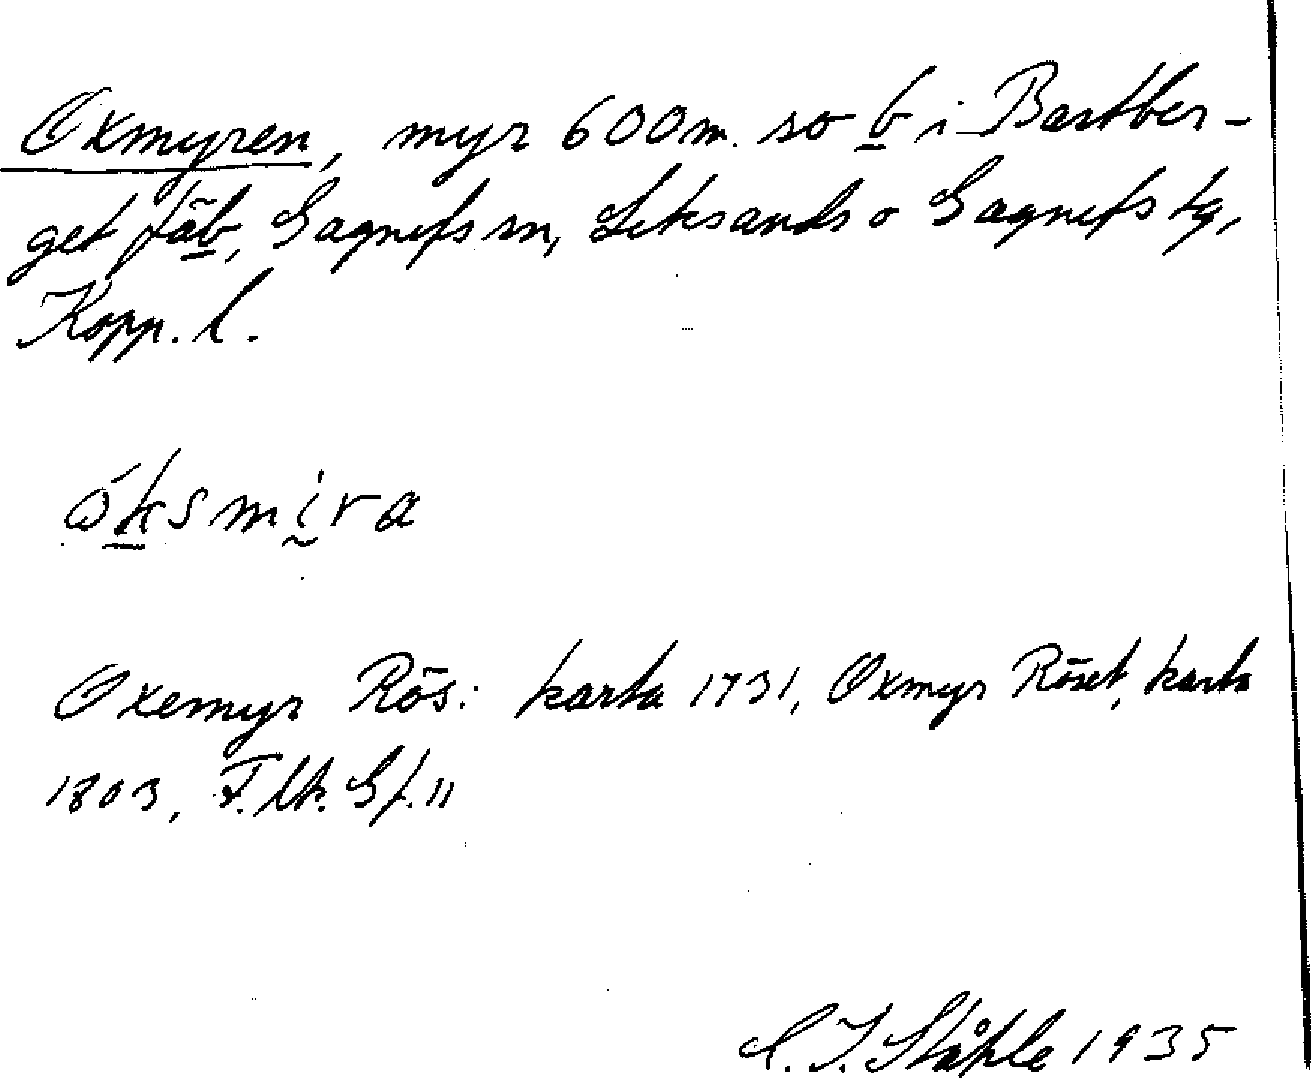 Oxmyren, myr 600 m. so b i Bastber-
get fäb, Gagnefs sn, Leksands o Gagnefs tg,
Kopp. l.
óksmira
Oxemyr Rös: karta 1731, Oxmyr Röset, karta
1803, F. lk. Gf. 11
C. I. Ståhle 1935